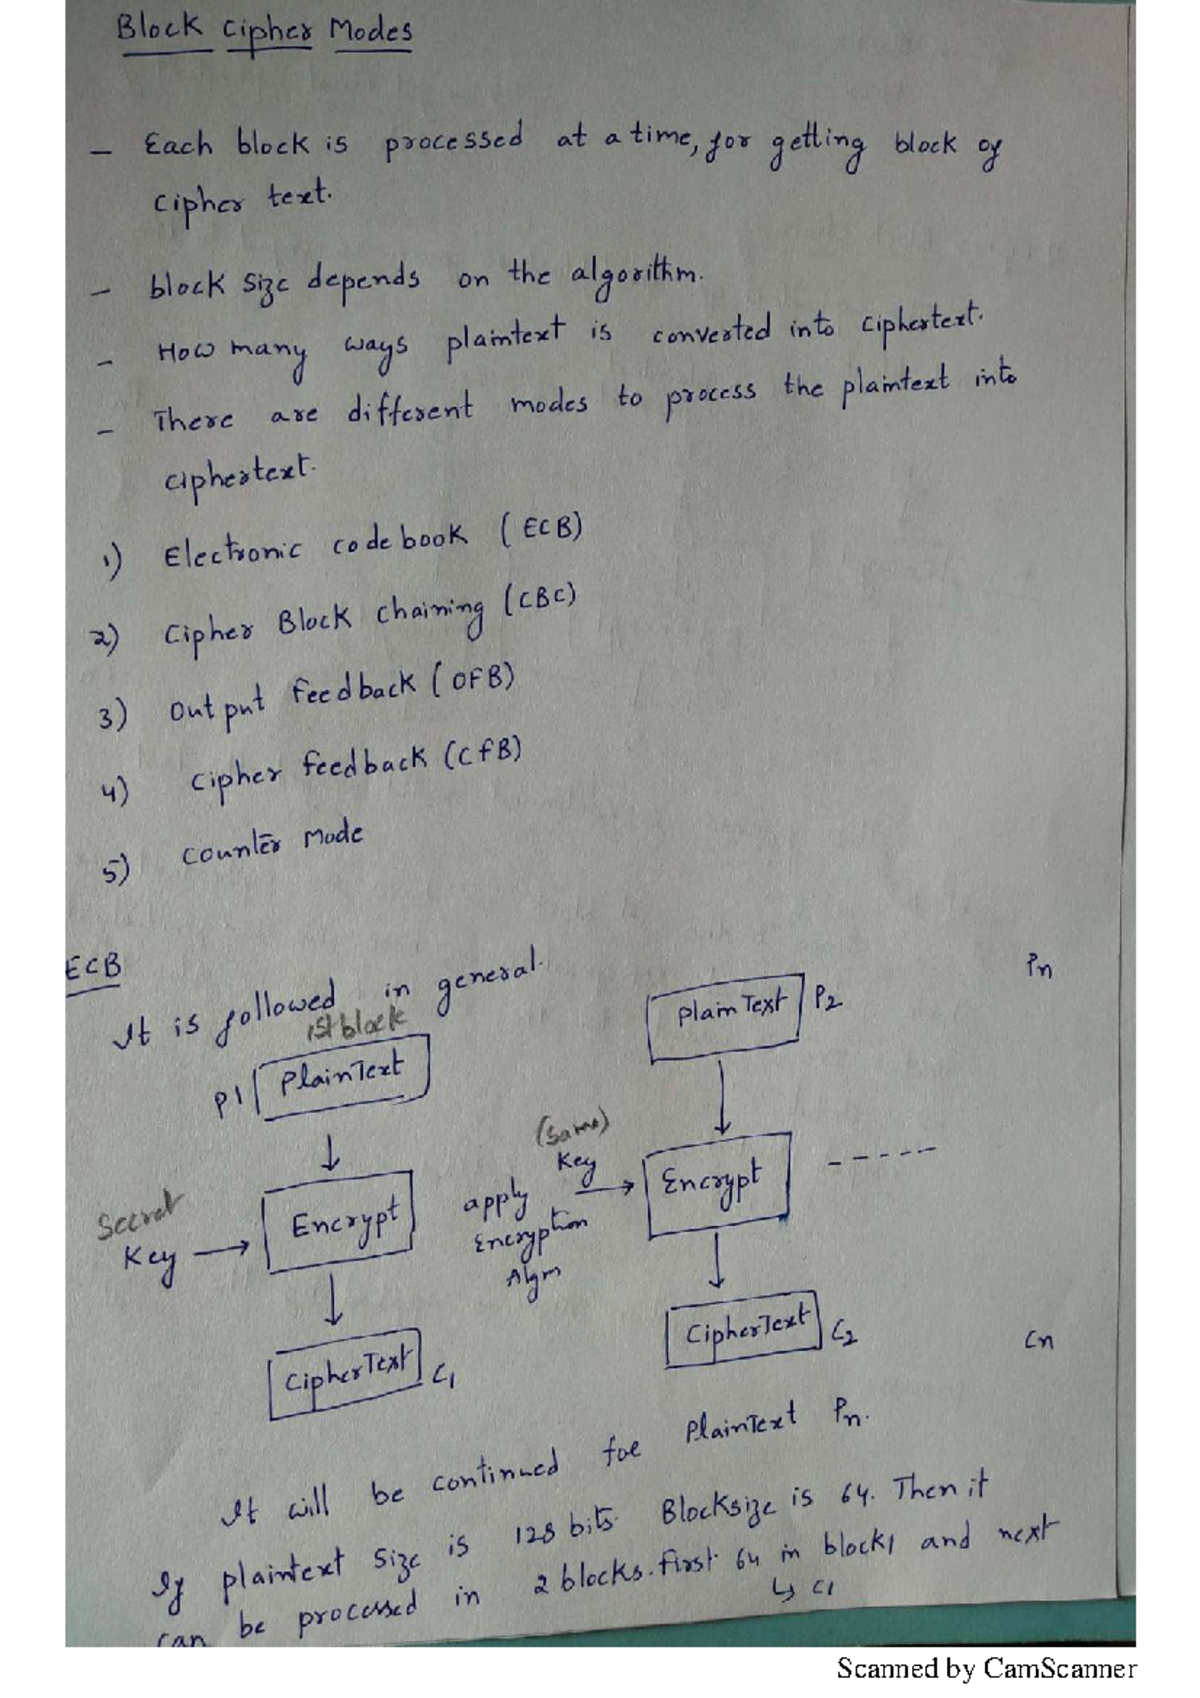 Block Cipher Modes
- Each block is processed at a time, for getting block of
cipher text.
- block size depends on the algorithm.
- How many ways plaintext is converted into ciphertext.
- There are different modes to process the plaintext into
ciphertext.
1) Electronic codebook (ECB)
2) Cipher Block Chaining (CBC)
3) Output Feedback (OFB)
4) Cipher feedback (CFB)
5) Counter Mode
ECB
It is followed in general.
1st block
P1 PlainText
PlainText P2
Pn
Secret
Key → Encrypt
(Same)
Key → Encrypt -----
apply
Encryption
Algm
CipherText C1
CipherText C2
Cn
It will be continued foe PlainText Pn.
If plaintext size is 128 bits. Blocksize is 64. Then it
can be processed in 2 blocks. First 64 in block1 and next
↳ C1
Scanned by CamScanner